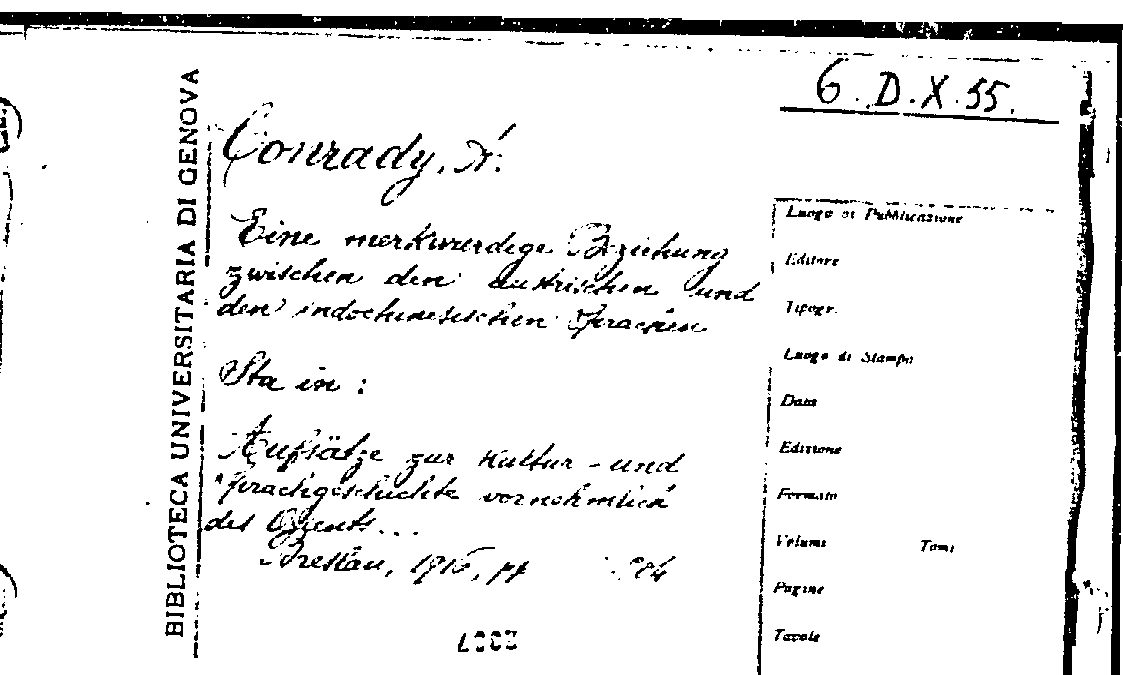 6. D. X. 55.
BIBLIOTECA UNIVERSITARIA DI GENOVA
Conrady, A.
Eine merkwuerdige Beziehung
zwischen den austrischen und
den indochinesischen Sprachen
Sta in :
Aufsätze zur Kultur - und
Sprachgeschichte vornehmlich
des Orients...
Breslau, 1916, pp
Luogo di Pubblicazione
Editore
Tipogr.
Luogo di Stampa
Data
Edizione
Formato
Volumi Tomi
Pagine
Tavole